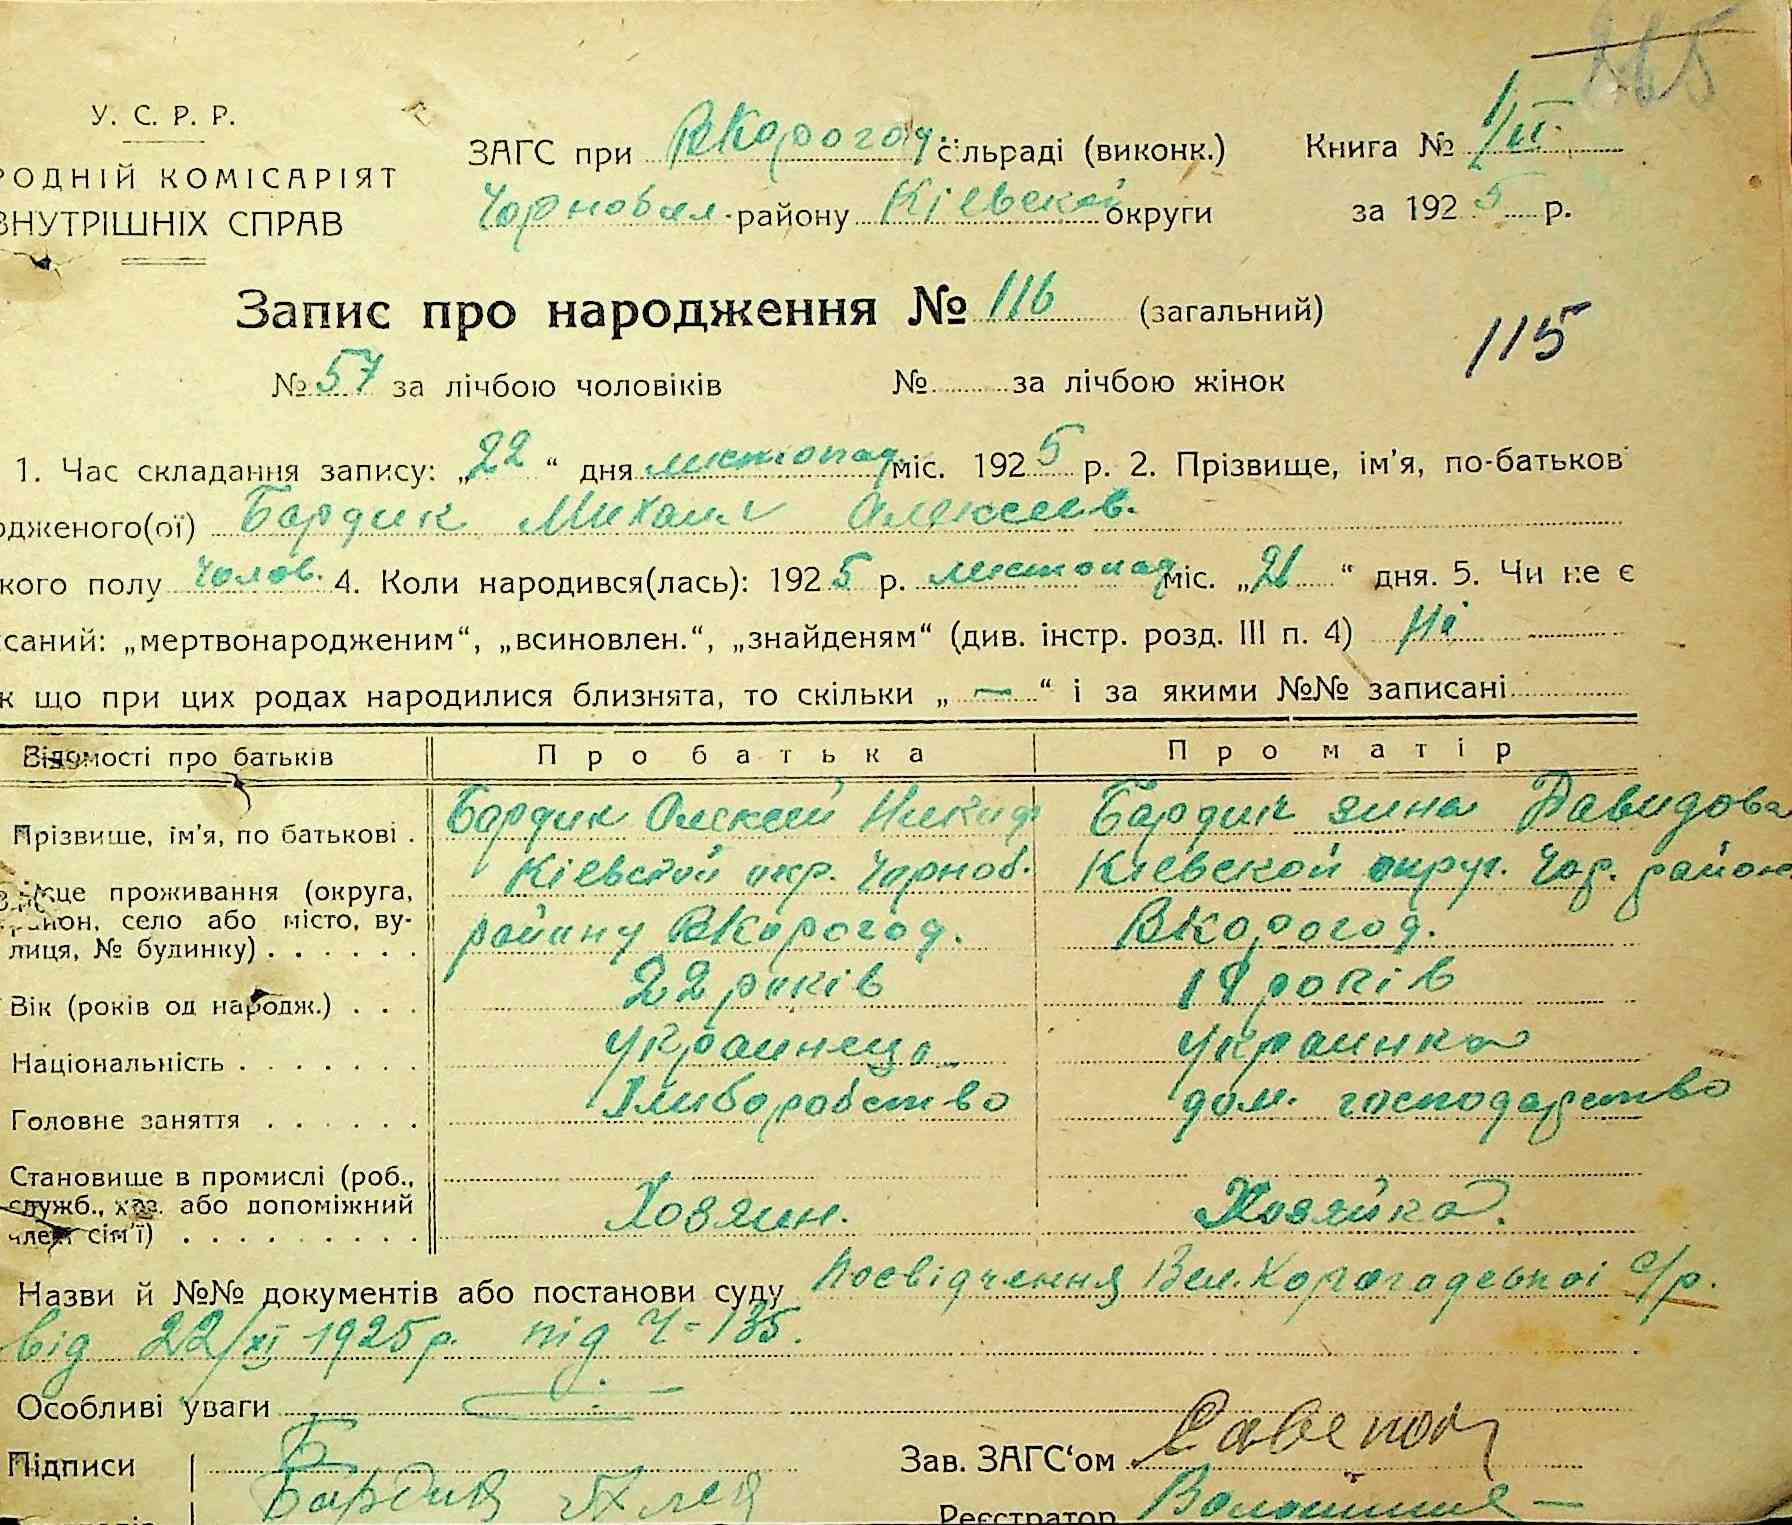 У. С. Р. Р.
РОДНІЙ КОМІСАРІЯТ
ВНУТРІШНІХ СПРАВ
ЗАГС при ВКорогод. сільраді (виконк.)
Чорнобил. району Кіевской округи
Книга № 1/III
за 1925 р.
Запис про народження № 116 (загальний)
115
№ 57 за лічбою чоловіків № за лічбою жінок
1. Час складання запису: „22“ дня листопад міс. 1925 р. 2. Прізвище, ім'я, по-батьков
одженого(ої) Бардик Михаил Алексеев.
кого полу Чолов. 4. Коли народився(лась): 1925 р. листопад міс. „21“ дня. 5. Чи не є
саний: „мертвонародженим“, „всиновлен.“, „знайденям“ (див. інстр. розд. III п. 4) Ні
к що при цих родах народилися близнята, то скільки „—“ і за якими №№ записані
Відомості про батьків Про батька Про матір
Прізвище, ім'я, по батькові . Бардик Олексей Никиф Бардик Давидова
місце проживання (округа, район, село або місто, вулиця, № будинку) . . . . . .
Кіевской окр. Чорноб. району ВКорогод.
Кіевской округ. Чор. район ВКорогод.
Вік (років од народж.) . . . 22 років 19 років
Національність . . . . . . . Украинець Украинка
Головне заняття . . . . . . Хлиборобство дом. господарство
Становище в промислі (роб., служб., хаз. або допоміжний член сім'ї) . . . . . . . . . Хозяин. Хозяйка.
Назви й №№ документів або постанови суду Посвідчення Вел. Корогодської с/р.
від 22/XI 1925 р. під Ч-135.
Особливі уваги
Підписи Бардик
Зав. ЗАГС'ом
Реєстратор